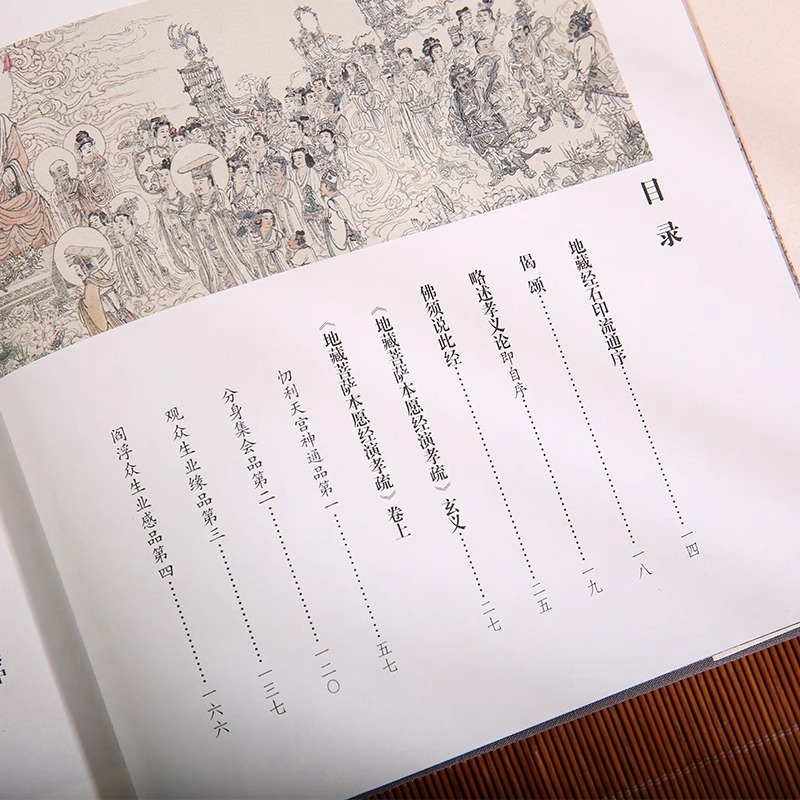 目录
地藏经石印流通序……一四
偈颂……一八
略述孝义论即自序……一九
佛须说此经……二五
《地藏菩萨本愿经演孝疏》玄义……二七
《地藏菩萨本愿经演孝疏》卷上
忉利天宫神通品第一……五七
分身集会品第二……一二〇
观众生业缘品第三……一三七
阎浮众生业感品第四……一六六